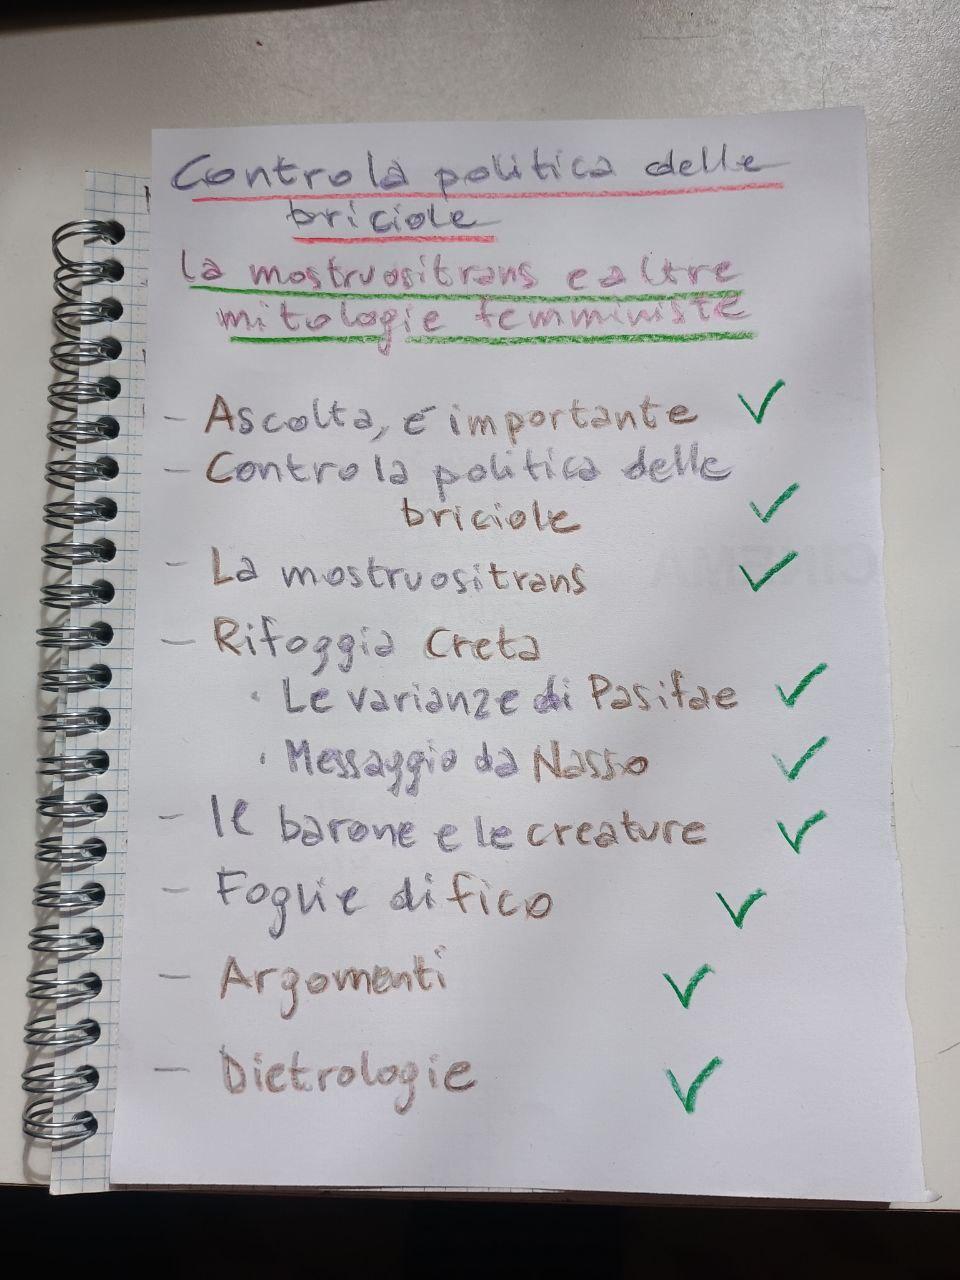 Contro la politica delle
briciole
la mostruositrans e altre
mitologie femministe
- Ascolta, é importante ✓
- Contro la politica delle
briciole ✓
- La mostruositrans ✓
- Rifoggia Creta
· Le varianze di Pasifae ✓
· Messaggio da Nasso ✓
- le barone e le creature ✓
- Foglie di fico ✓
- Argomenti ✓
- Dietrologie ✓